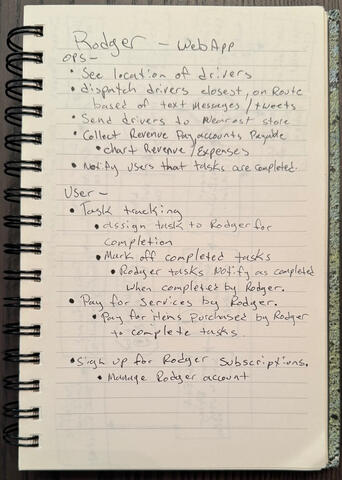 Rodger - WebApp
OPS -
• See location of drivers
• dispatch drivers closest, on Route
based of text Messages / tweets
• Send drivers to Nearest store
• Collect Revenue Pay accounts Payable
• chart Revenue / Expenses
• Notify users that tasks are completed.
User -
• Task tracking
• assign task to Rodger for
completion
• Mark off completed tasks
• Rodger tasks Notify as completed
when completed by Rodger.
• Pay for Services by Rodger.
• Pay for items Purchased by Rodger
to complete tasks
• Sign up for Rodger Subscriptions.
• Manage Rodger account